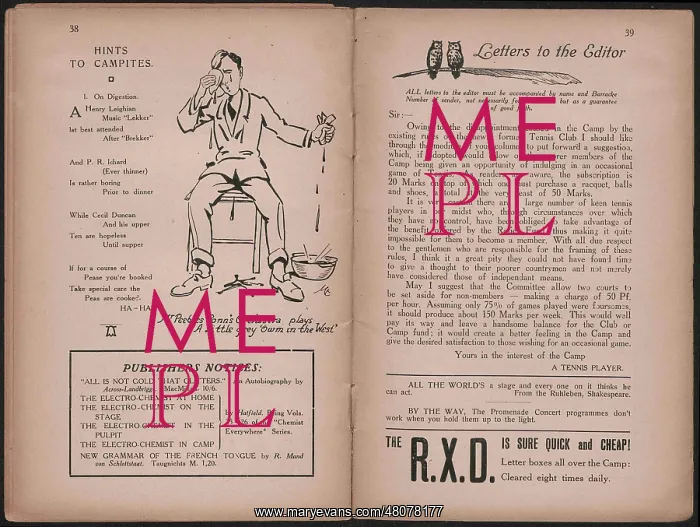 38
HINTS
TO CAMPITES.
1. On Digestion.
A Henry Leighian
Music "Lekker"
Ist best attended
After "Brekker"
And P. R. Ichard
(Ever thinner)
Is rather boring
Prior to dinner
While Cecil Duncan
And his upper
Ten are hopeless
Until supper
If for a course of
Pease you're booked
Take special care the
Peas are cooked.
HA - HA
plays
"A little grey 'oam in the West"
PUBLISHERS NOTICES:
"ALL IS NOT GOLD THAT GLITTERS." An Autobiography by
Across-Landbrigg. MacMi 10/6.
THE ELECTRO-CHEMIST AT HOME
THE ELECTRO-CHEMIST ON THE
STAGE
THE ELECTRO-CHEMIST IN THE
PULPIT
THE ELECTRO-CHEMIST IN CAMP
by Hatfield. Vols.
"Chemist
Everywhere" Series.
NEW GRAMMAR OF THE FRENCH TONGUE by R. Mund
van Schlottstaat. Taugnichts M. 1,20.
39
Letters to the Editor
ALL letters to the editor must be accompanied by name and Barracke
Number of sender, not necessarily for but as a guarantee
of good faith.
Sir:—
Owing to the disappointment in the Camp by the
existing rules of the new formed Tennis Club I should like
through the medium of your volume to put forward a suggestion,
which, if adopted would allow members of the
Camp being given an opportunity of indulging in an occasional
game of Tennis. readers aware, the subscription is
20 Marks top of which one must purchase a racquet, balls
and shoes, a total at the very least of 50 Marks.
It is very there are a large number of keen tennis
players in our midst who, through circumstances over which
they have no control, have been obliged to take advantage of
the benefit offered by the thus making it quite
impossible for them to become a member. With all due respect
to the gentlemen who are responsible for the framing of these
rules, I think it a great pity they could not have found time
to give a thought to their poorer countrymen and not merely
have considered those of independent means.
May I suggest that the Committee allow two courts to
be set aside for non-members — making a charge of 50 Pf.
per hour. Assuming only 75% of games played were foursomes,
it should produce about 150 Marks per week. This would well
pay its way and leave a handsome balance for the Club or
Camp fund; it would create a better feeling in the Camp and
give the desired satisfaction to those wishing for an occasional game.
Yours in the interest of the Camp
A TENNIS PLAYER.
ALL THE WORLD'S a stage and every one on it thinks he
can act. From the Ruhleben, Shakespeare.
BY THE WAY, The Promenade Concert programmes don't
work when you hold them up to the light.
THE R.X.D. IS SURE QUICK and CHEAP!
Letter boxes all over the Camp:
Cleared eight times daily.
ME
PL
ME
PL
www.maryevans.com/48078177